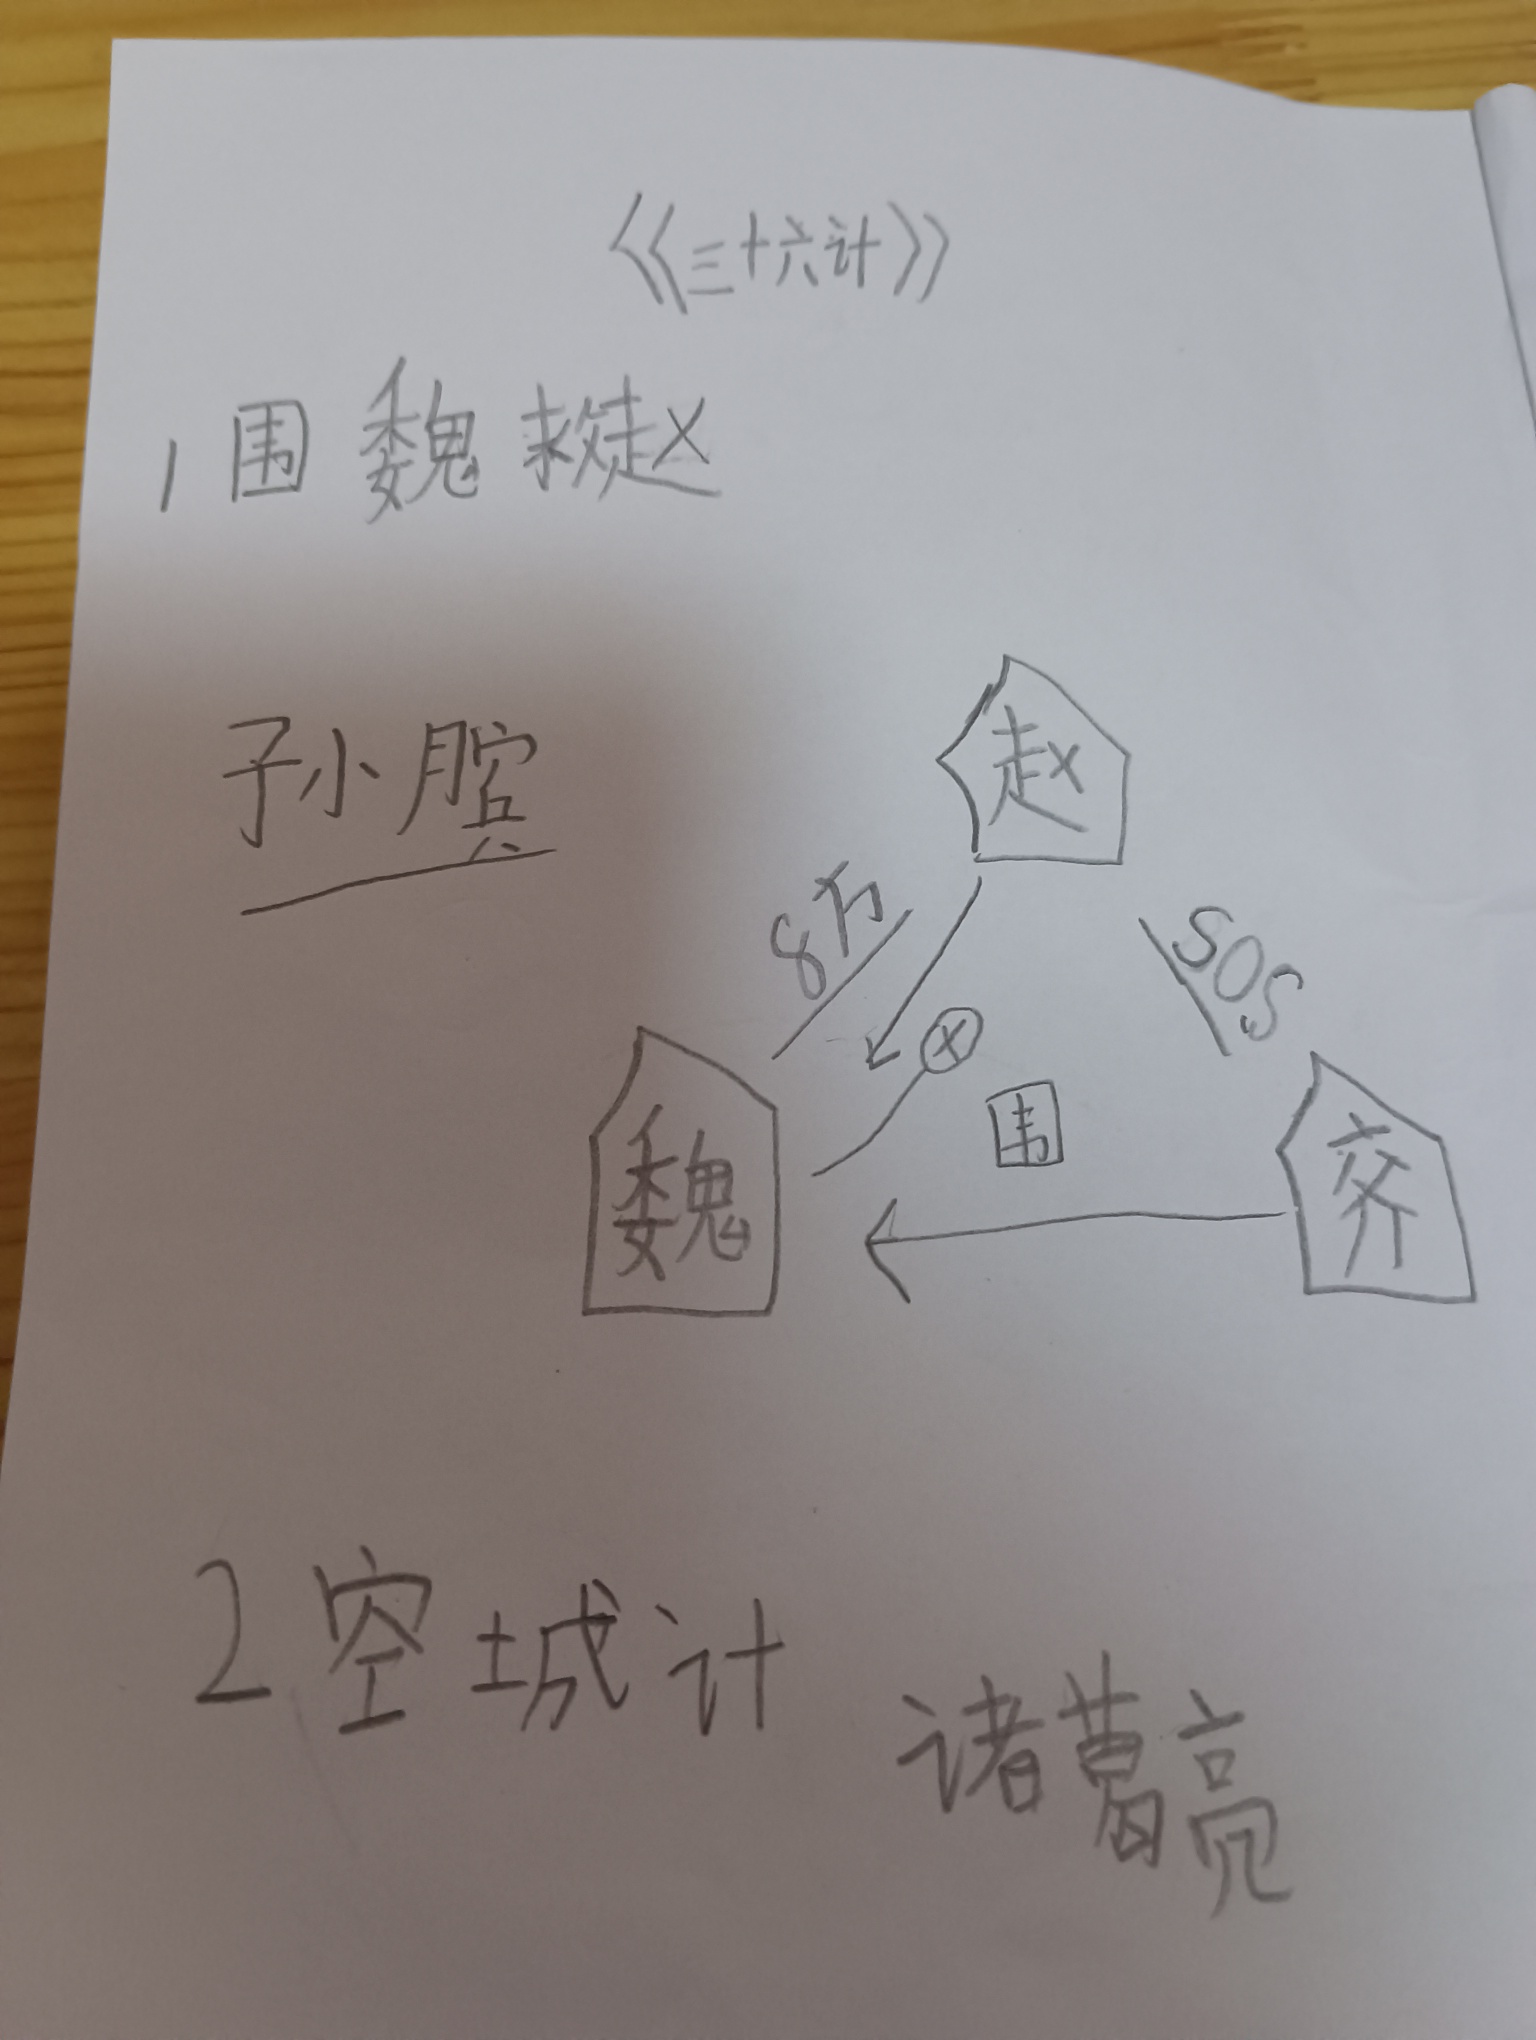 《三十六计》
1 围魏救赵
孙膑
赵
8万
SOS
围
魏
齐
2 空城计
诸葛亮